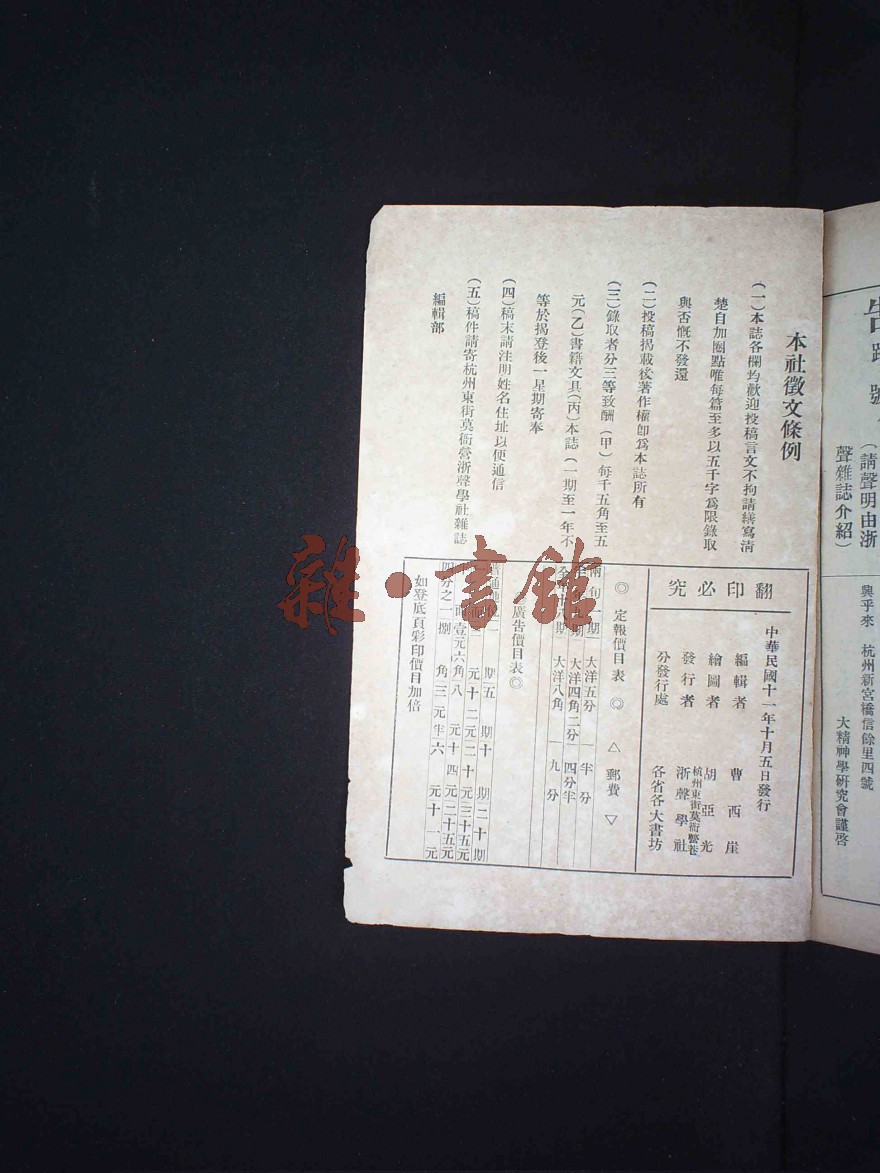 告
號
(請聲明由浙
聲雜誌介紹)
興乎來 杭州新宮橋信餘里四號
大精神學研究會謹啓
本社徵文條例
(一)本誌各欄均歡迎投稿言文不拘請繕寫淸
楚自加圈點唯每篇至多以五千字爲限錄取
與否慨不發還
(二)投稿揭載後著作權卽爲本誌所有
(三)錄取者分三等致酬(甲)每千五角至五
元(乙)書籍文具(丙)本誌(一期至一年不
等於揭登後一星期寄奉
(四)稿末請注明姓名住址以便通信
(五)稿件請寄杭州東街莫衙營浙聲學社雜誌
編輯部
翻印必究
中華民國十一年十月五日發行
編輯者 曹西崖
繪圖者 胡亞光
發行者 杭州東街莫衙營巷 浙聲學社
分發行處 各省各大書坊
◎ 定報價目表 ◎ △ 郵費 ▽
旬 期 大洋五分 一半分
期 大洋四角二分 四分半
期 大洋八角 一九分
廣告價目表◎
期 五期 十期 二十期
元 十二元 二十元 三十五元
面 壹元六角 八元 十四元 二十五元
四分之一 捌角 三元半 六元 十一元
如登底頁彩印價目加倍
雜·書館